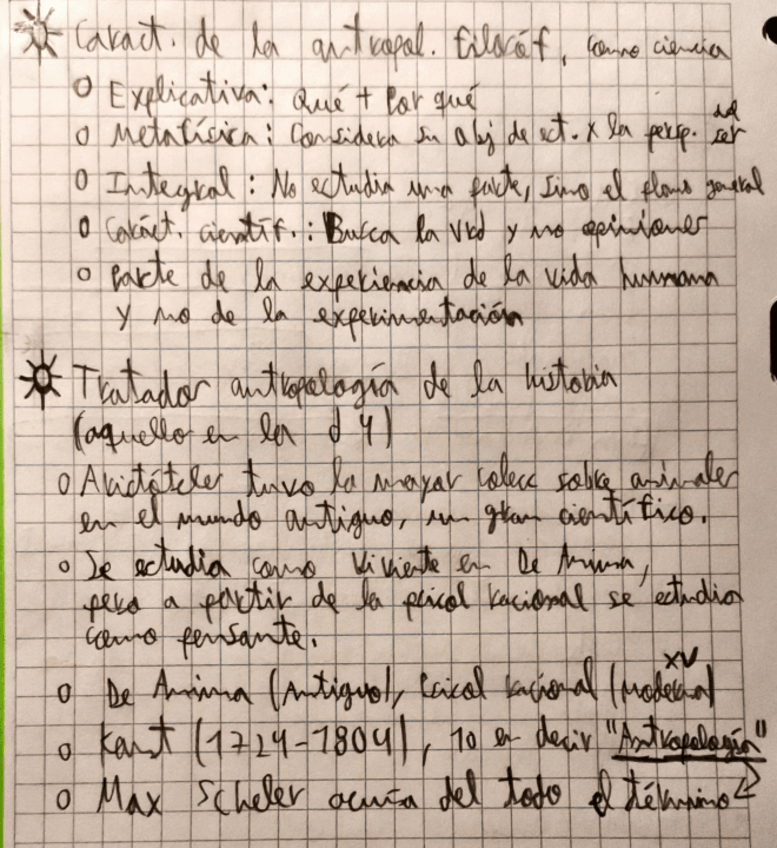 Caract. de la antropol. filosóf. como ciencia
Explicativa: Qué + Por qué
Metafísica: Considera su obj de est. x la persp. del ser
Integral: No estudia una parte, sino el plano general
Caráct. científ.: Busca la vkd y no opiniones
Parte de la experiencia de la vida humana
y no de la experimentación
Tratados antropología de la historia
(aquello en la d 4)
Aristóteles tuvo la mayor colecc sobre animales
en el mundo antiguo, un gran científico.
Se estudia como viviente en De Anima,
pero a partir de la psicol racional se estudia
como pensante.
De Anima (Antiguo), Psicol racional (Moderna) XV
Kant (1724-1804), 1o en decir "Antropología"
Max Scheler acuña del todo el término